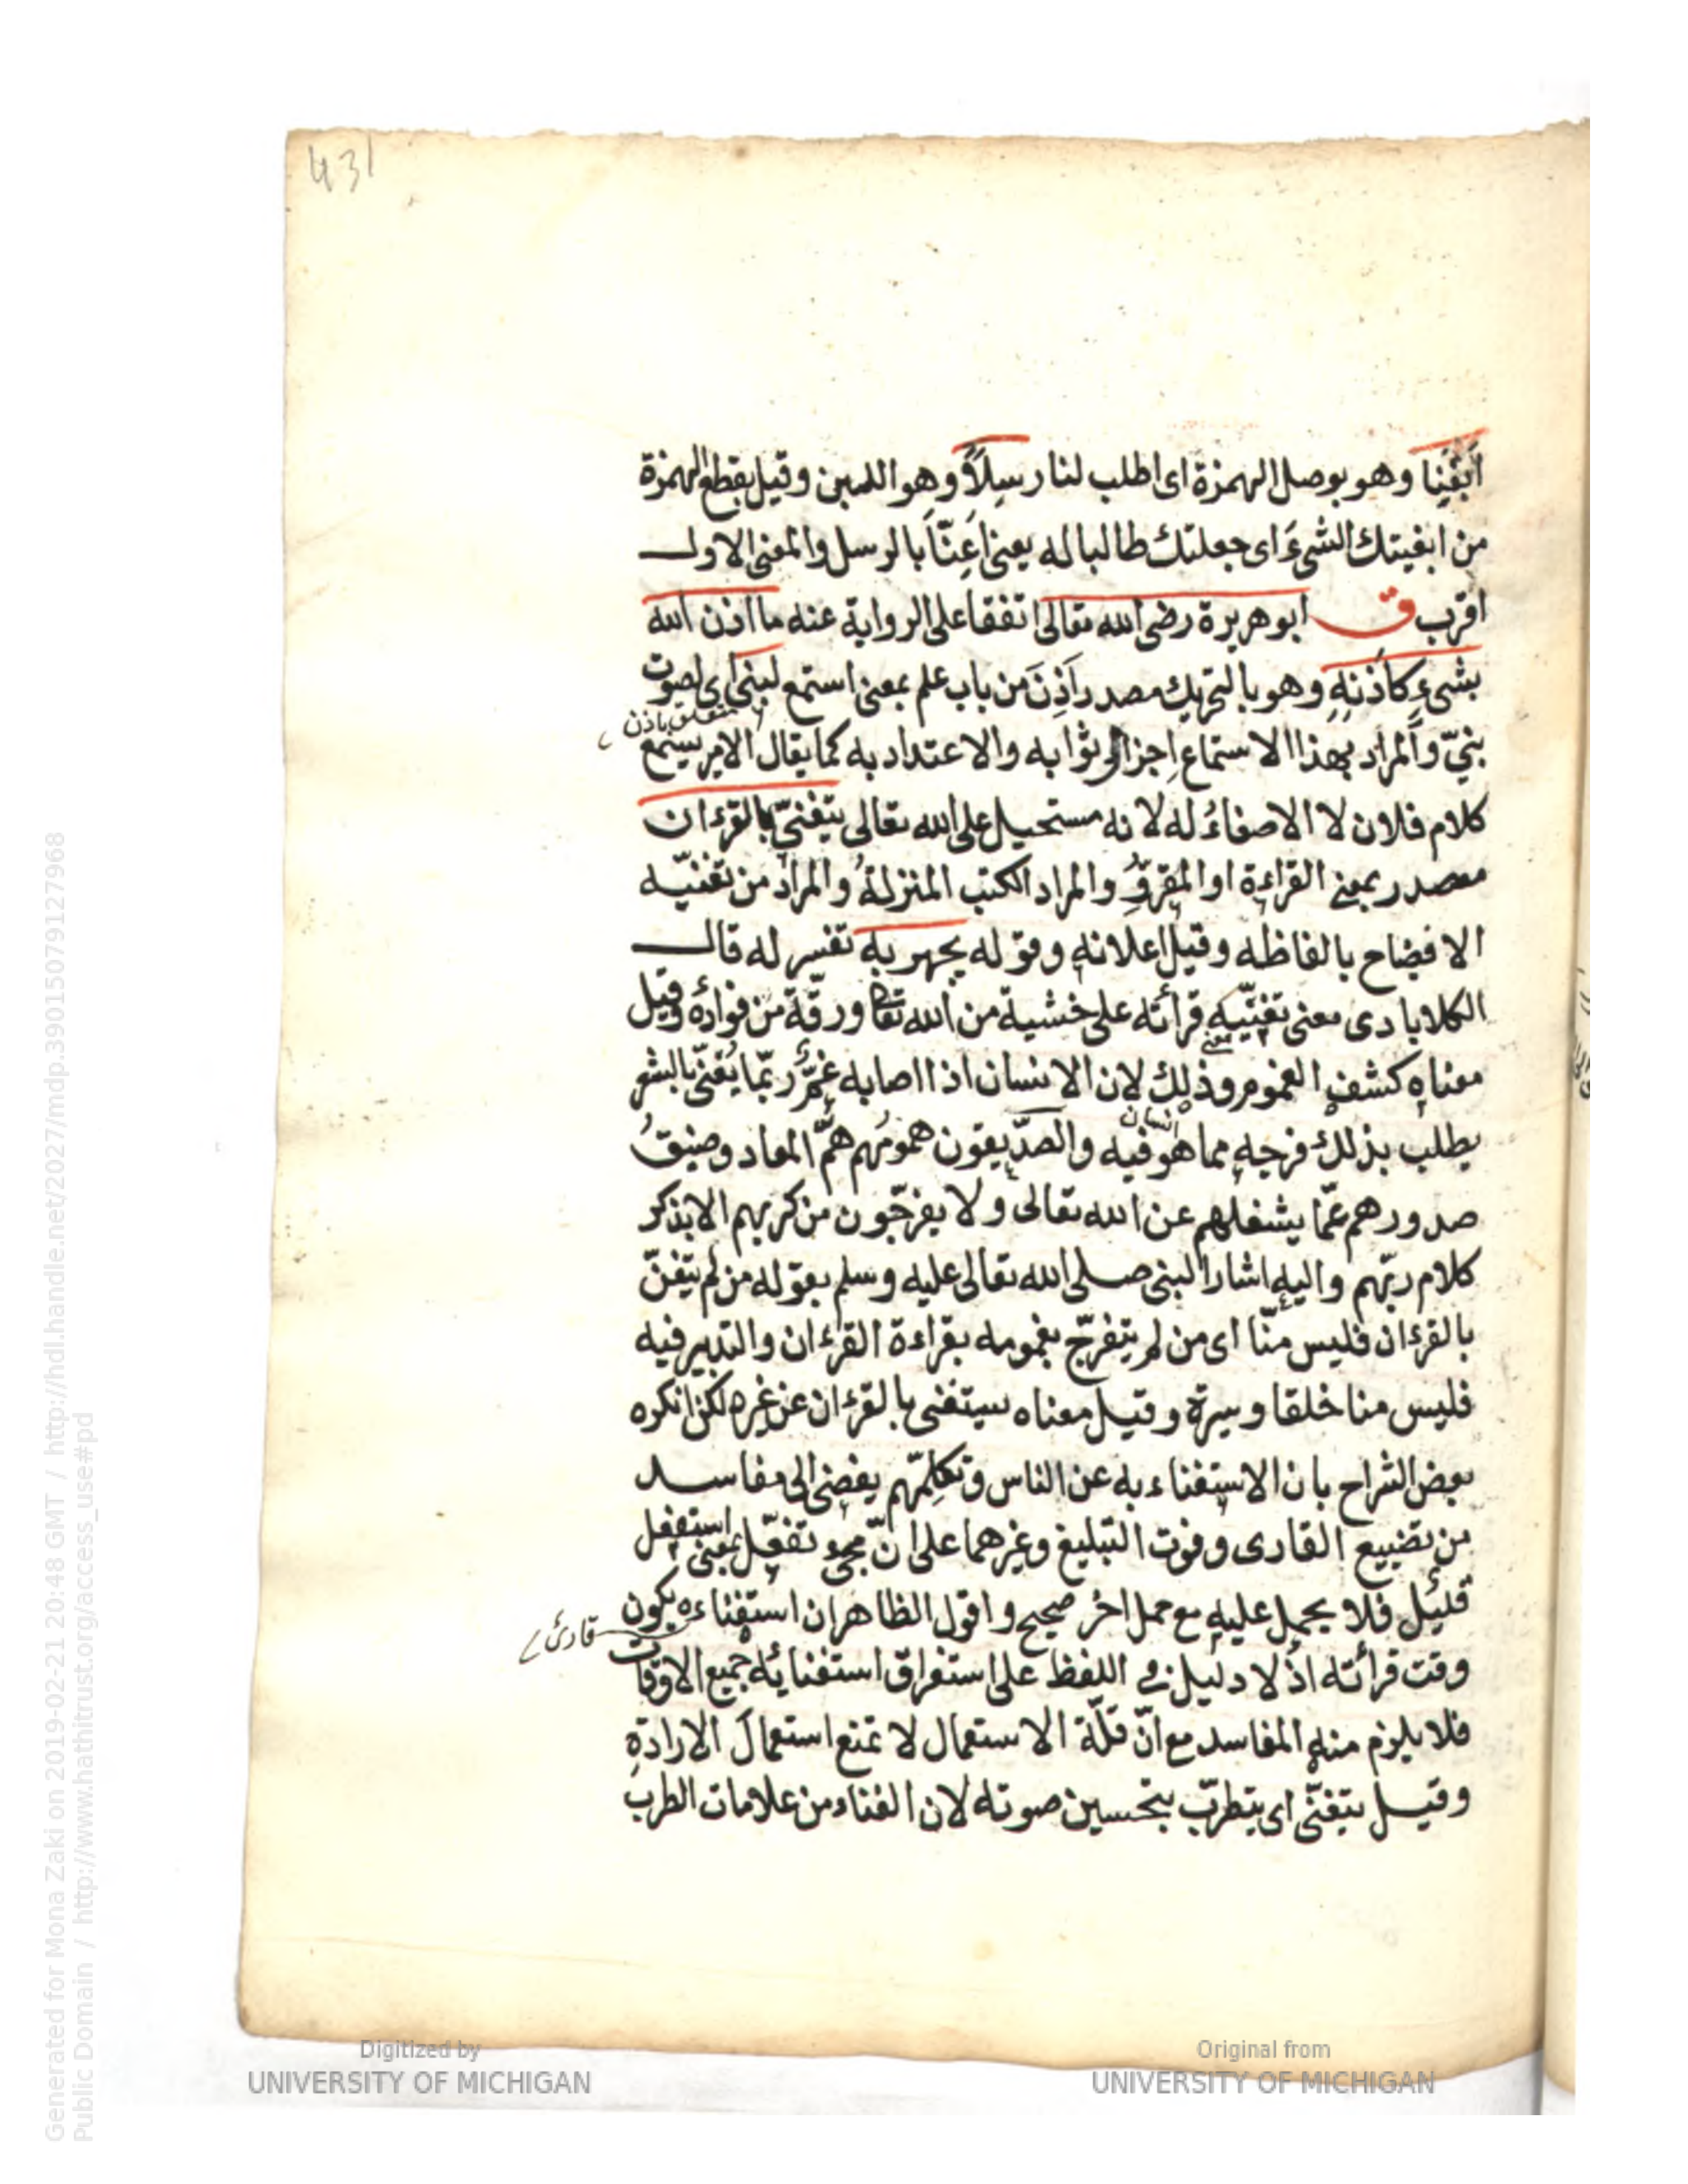 431
أبغنا وهو بوصل الهمزة اى اطلب لنا رسلاً وهو اللبن وقيل بقطع الهمزة
من ابغيتك الشىءَ اى جعلتك طالبا له يعنى اَعِنّاَ بالرسل والمعنى الاول
اقرب ق ابو هريرة رضى الله تعالى اتفقا على الرواية عنه ما اذن الله
بشىءٍ كاَذَنِهِ وهو بالتحريك مصدر اَذِنَ من باب علم بمعنى استمع لنبىّ اى لصوت
متعلق باذن
بنىّ والمراد بهذا الاستماع اجزال ثوابه والاعتداد به كما يقال الامير يستمع
كلام فلان لا الاصغاءُ له لانه مستحيل على الله تعالى يتغنّى بالقرءان
مصدر بمعنى القراءة او المقروِّ والمراد الكتب المنزلةُ والمراد من تغنيّه
الافضاح بالفاظه وقيل اعلانه وقوله يجهر به تفسير له قال
الكلابادى معنى تغنّيه قرأته على خشية من الله تعا ورقّة من فوادهٔ وقيل
معناه كشف الغموم وذلك لان الانسان اذا اصابه غمّ ربّما يُغنّى بالشعر
يطلب بذلك فرجه مما هو فيه والصدّيقون همومُهم همُّ المعاد وضيقُ
انسان
صدورهم عمّا يشغلهم عن الله تعالى ولا يفرجّون من كربهم الا بذكر
كلام ربّهم واليه اشار النبى صلى الله تعالى عليه وسلم بقوله من لم يتغنّ
بالقرءان فليس منّا اى من لم يتفرجّ بغمومه بقراءة القرءان والتدبير فيه
فليس منا خلقا وسيرة وقيل معناه يستغنى بالقرءان عن غيره لكن انكره
بعض الشراح بان الاستغناء به عن الناس وتكلمّهم يفضى الى مفاسد
من تضييع القارى وفوت التبليغ وغيرهما على انّ مجىء تفعّل بمعنى استفعل
قليل فلا يحمل عليه مع حمل اخر صحيح واقول الظاهر ان استغناءه يكون
قارئ
وقت قرأته اذ لا دليل فى اللفظ على استغراق استغنايه جميع الاوقات
فلا يلزم منه المفاسد مع انّ قلّة الاستعمال لا تمنع استعمالَ الارادةِ
وقيل يتغنّى اى يتطرّب بتحسين صوته لان الغناء من علامات الطرب
Digitized by
UNIVERSITY OF MICHIGAN
Original from
UNIVERSITY OF MICHIGAN
Generated for Mona Zaki on 2019-02-21 20:48 GMT / http://hdl.handle.net/2027/mdp.39015079127968
Public Domain / http://www.hathitrust.org/access_use#pd